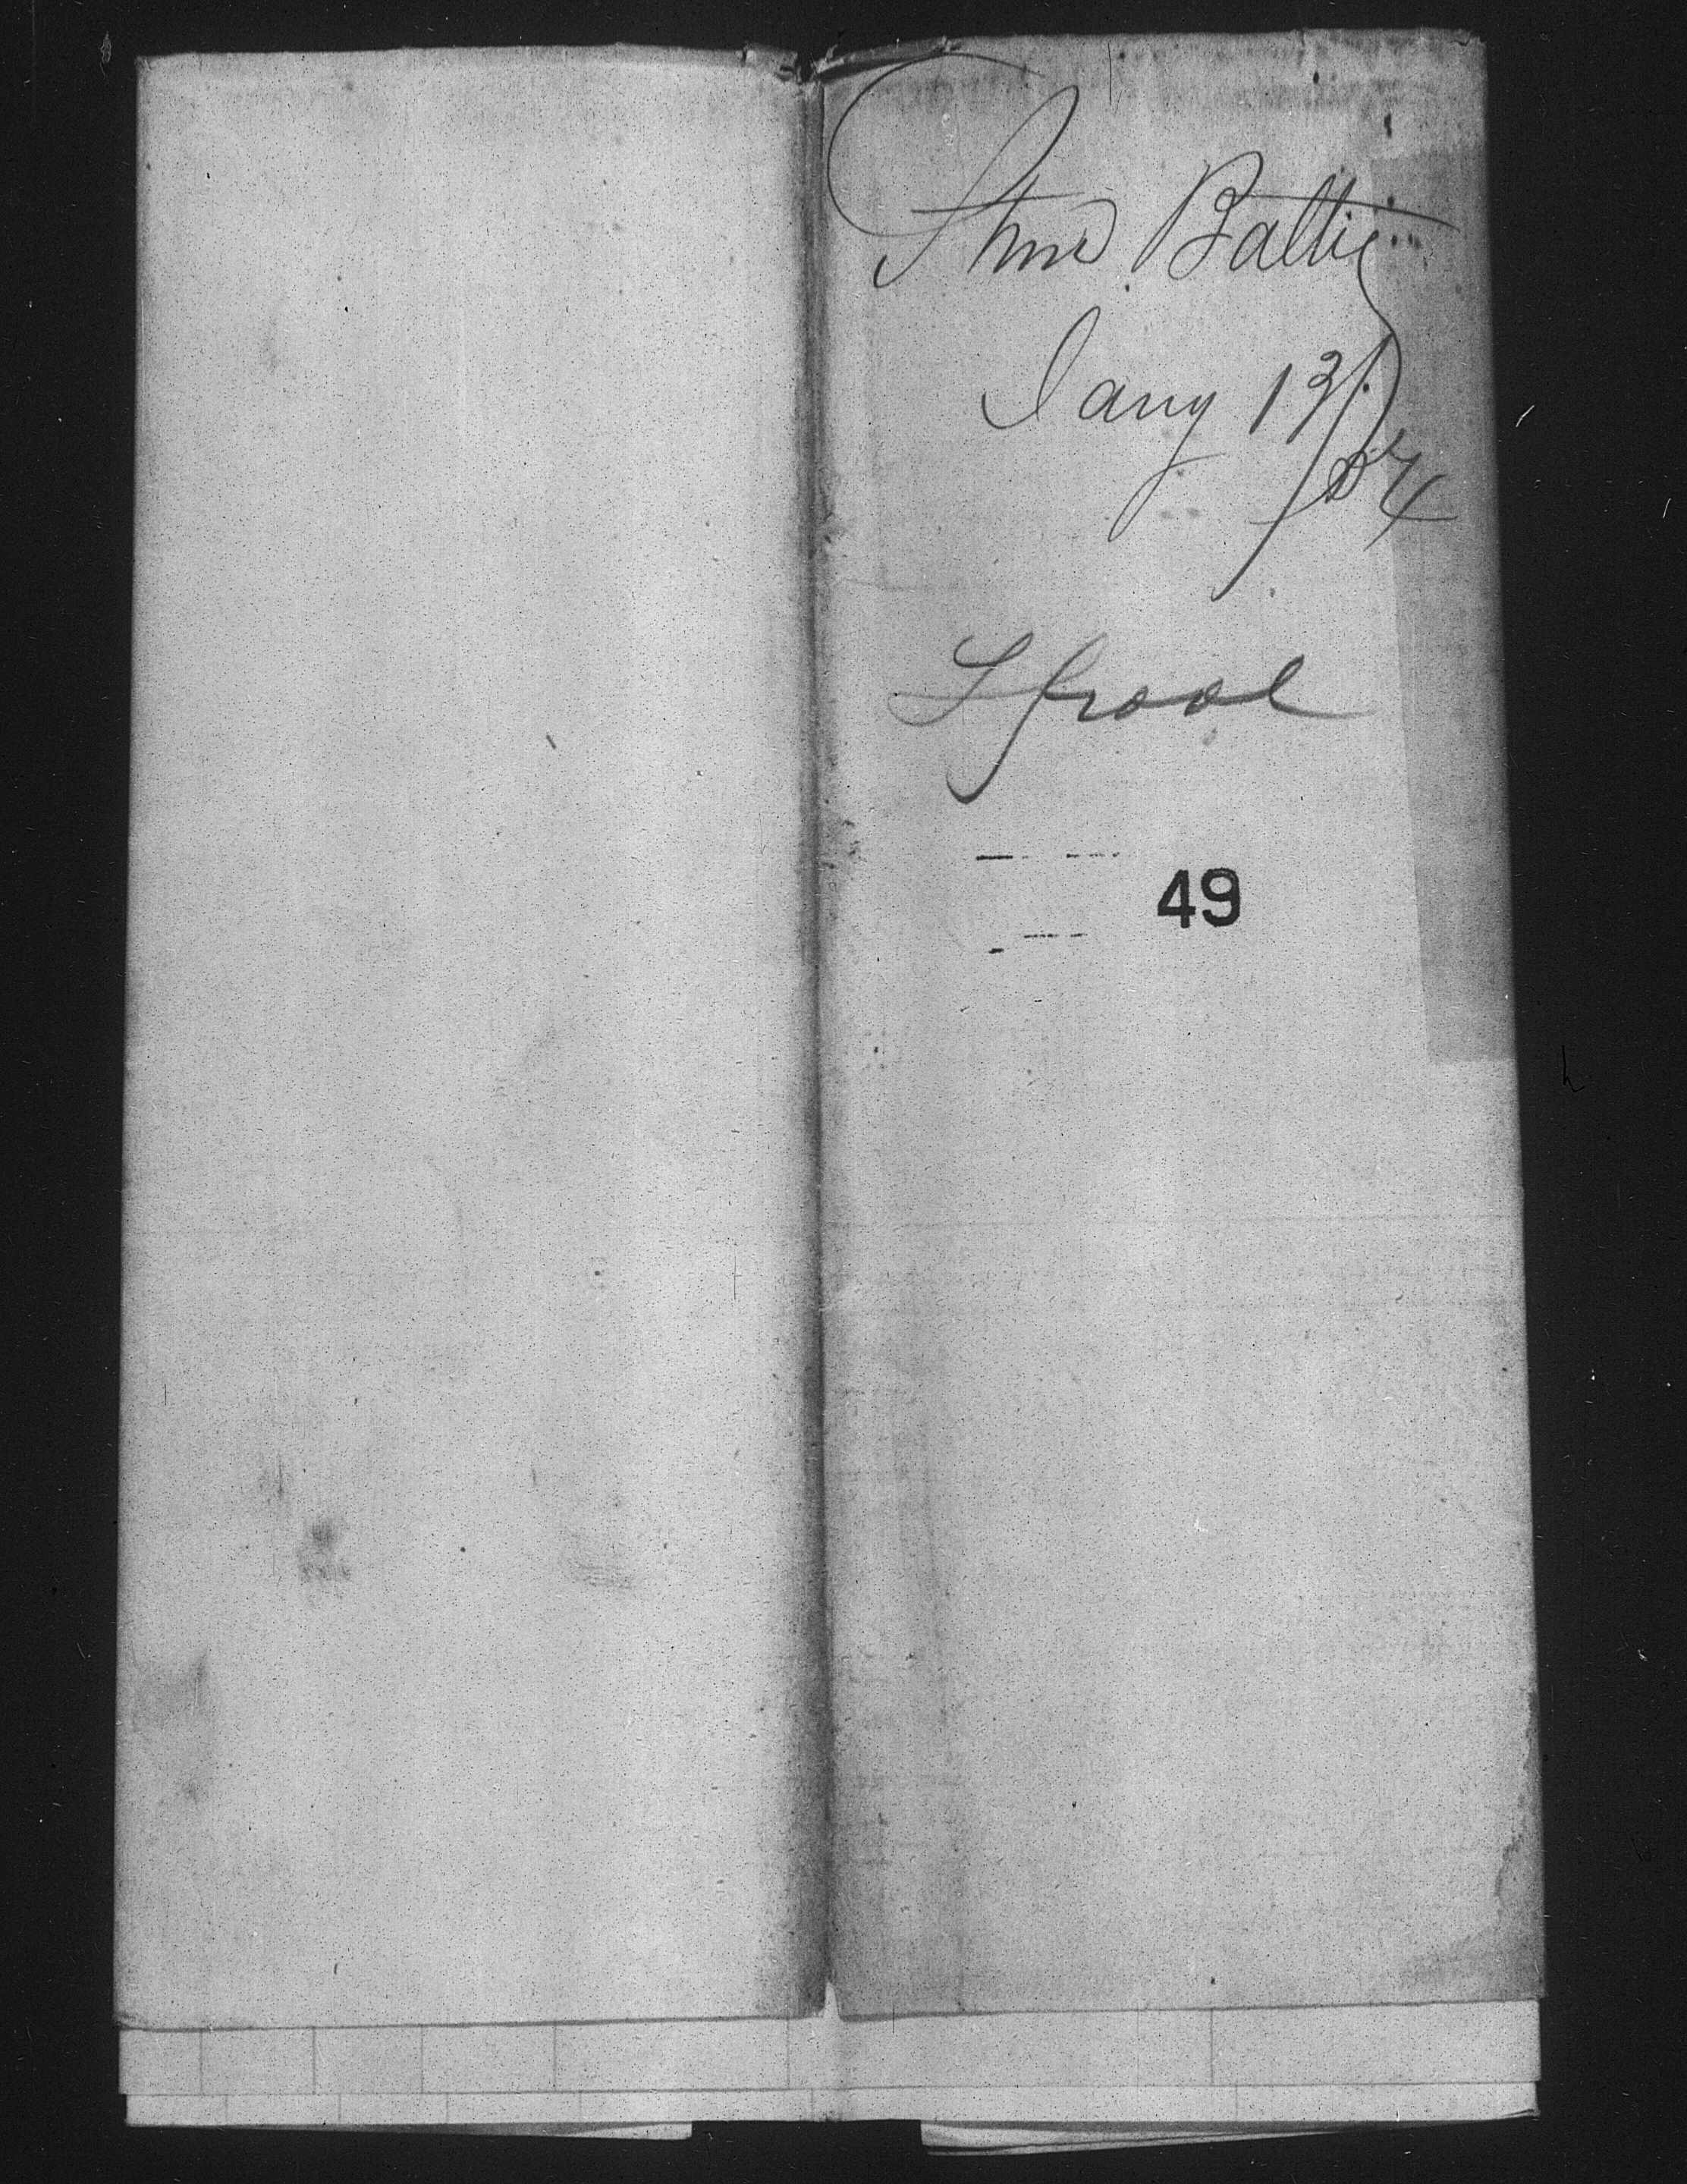 Stmr Baltic
Jany 13/84
Lpool
49